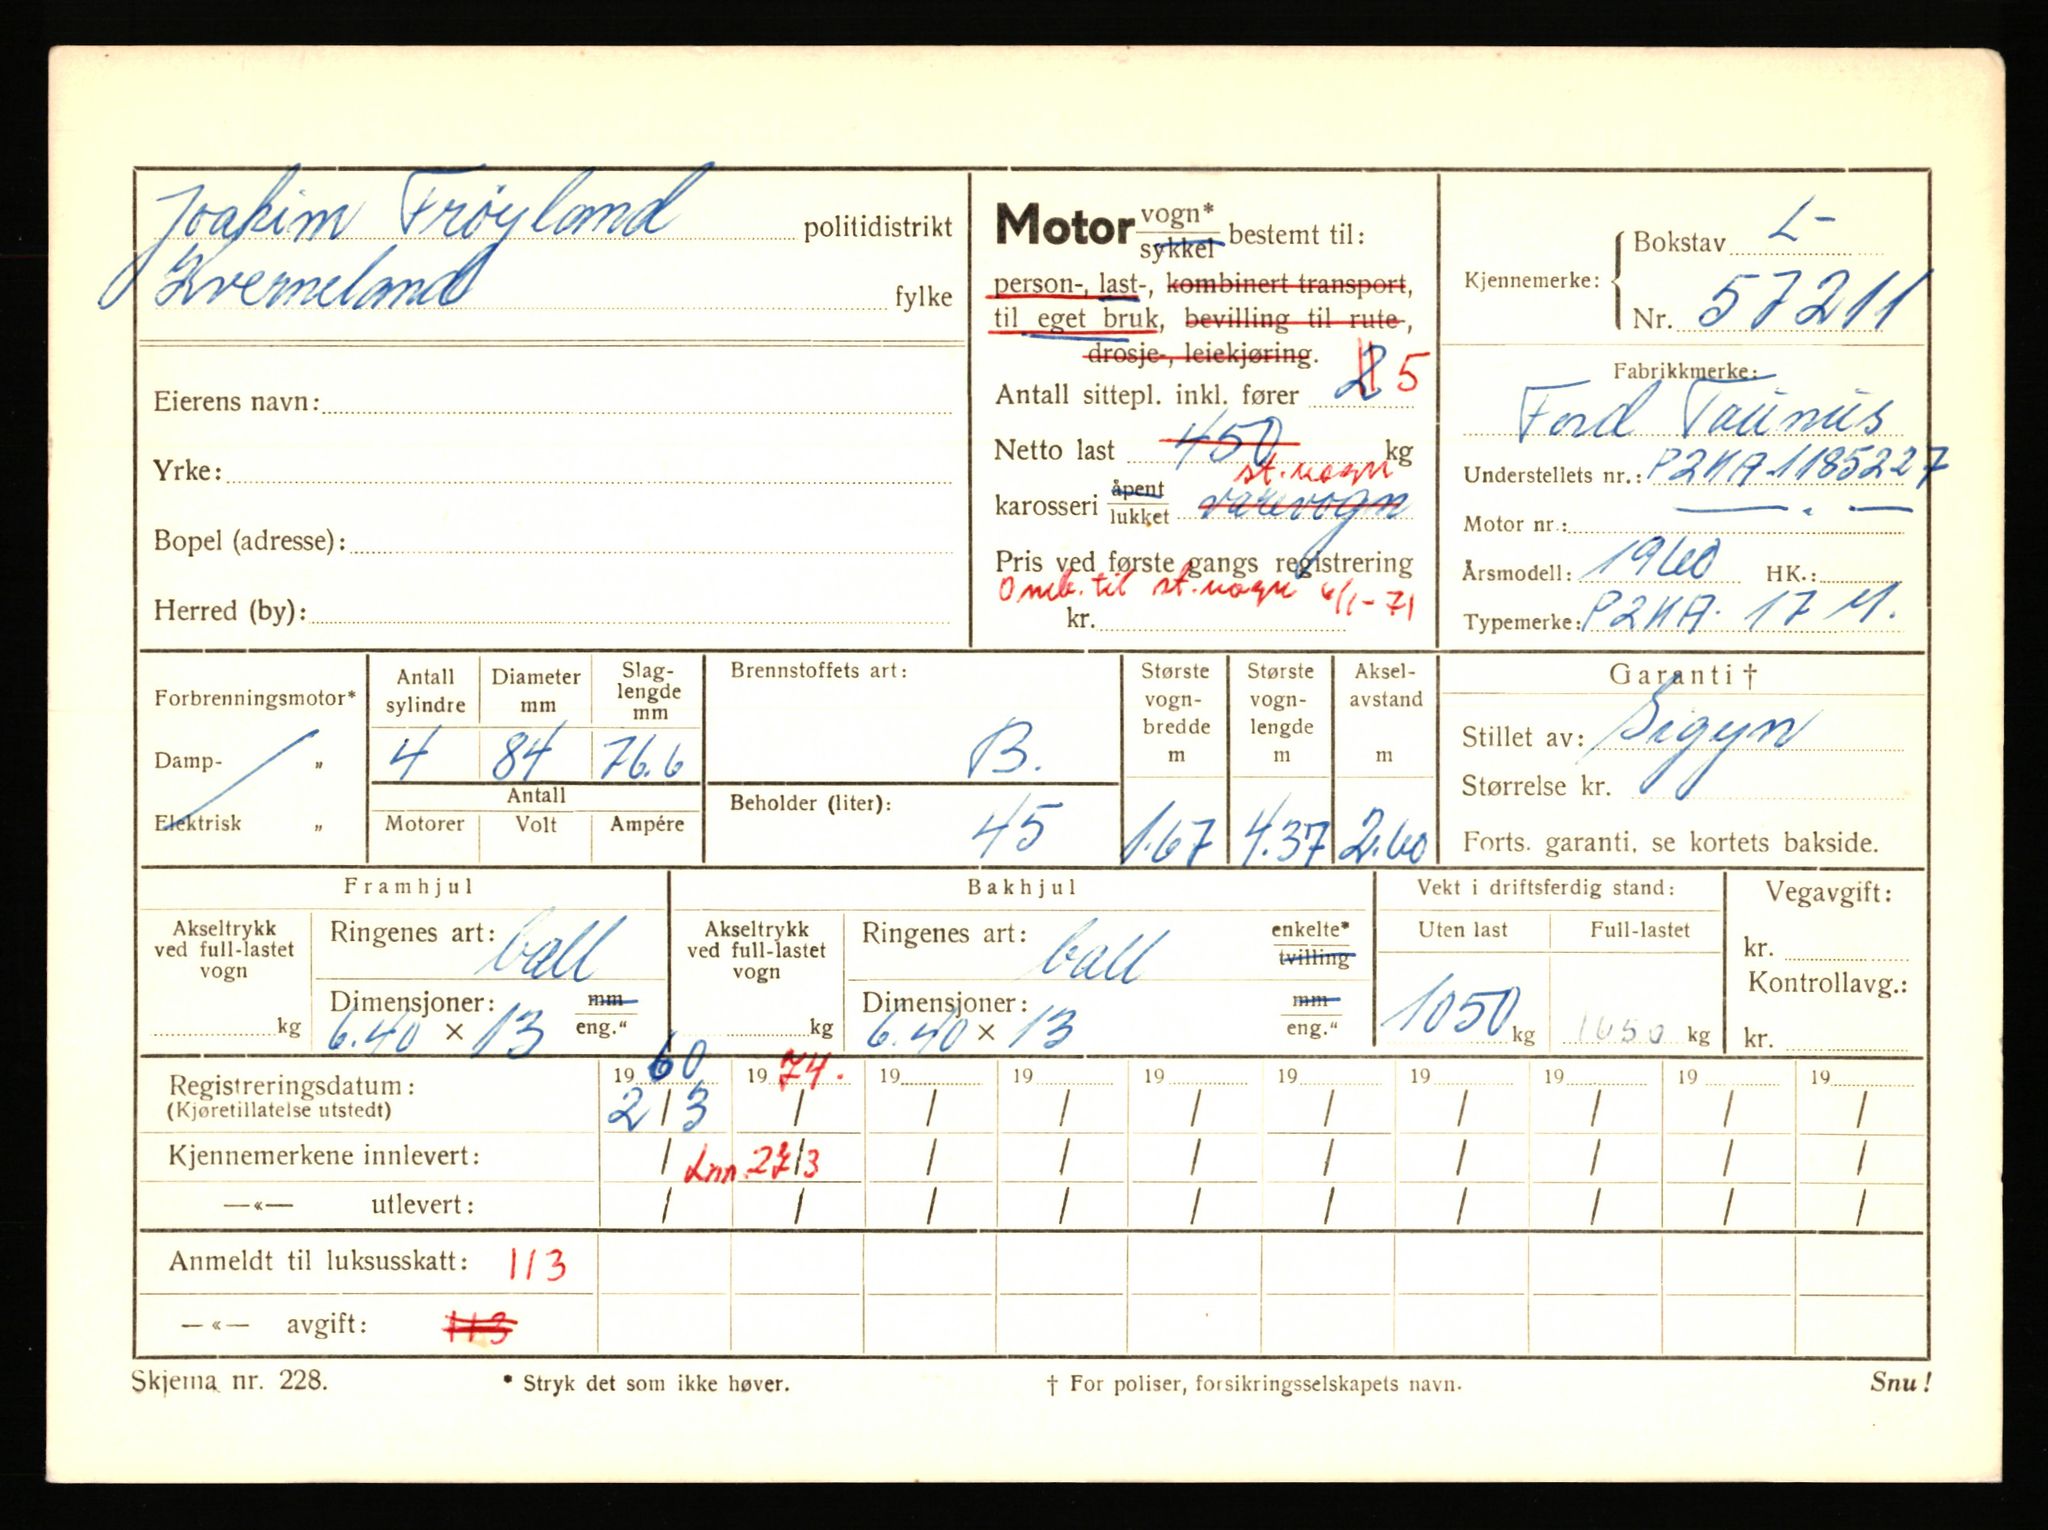 Joakim Frøyland politidistrikt
Kverneland fylke
Eierens navn:
Yrke:
Bopel (adresse):
Herred (by):
Motor vogn* sykkel bestemt til:
person-, last-, kombinert transport,
til eget bruk, bevilling til rute-,
drosje-, leiekjøring.
Antall sittepl. inkl. fører 2 5
Netto last 450 kg
st.vogn
karosseri åpent lukket varevogn
Pris ved første gangs registrering
Omb. til st.vogn 6/1-71
kr.
Kjennemerke: Bokstav L-
Nr. 57211
Fabrikkmerke:
Ford Taunus
Understellets nr.: P2NA 1185227
Motor nr.:
Årsmodell: 1960 HK.:
Typemerke: P2NA. 17 M.
Forbrenningsmotor*
Damp- „
Elektrisk „
Antall sylindre Diameter mm Slag-lengde mm
4 84 76.6
Antall
Motorer Volt Ampére
Brennstoffets art:
B.
Beholder (liter):
45
Største vogn-bredde m Største vogn-lengde m Aksel-avstand m
1.67 4.37 2.60
Garanti †
Stillet av: Sigyn
Størrelse kr.
Forts. garanti, se kortets bakside.
Framhjul
Akseltrykk ved full-lastet vogn
kg
Ringenes art: ball
Dimensjoner: mm
6.40 × 13 eng."
Bakhjul
Akseltrykk ved full-lastet vogn
kg
Ringenes art: ball enkelte* tvilling
Dimensjoner: mm
6.40 × 13 eng."
Vekt i driftsferdig stand:
Uten last Full-lastet
1050 kg 1650 kg
Vegavgift:
kr.
Kontrollavg.:
kr.
Registreringsdatum: 19 60 19 74. 19 19 19 19 19 19 19 19
(Kjøretillatelse utstedt) 2/3 / / / / / / / / /
Kjennemerkene innlevert: / Inn. 27/3 / / / / / / / /
—«— utlevert: / / / / / / / / / /
Anmeldt til luksusskatt: 113
—«— avgift: 113
Skjema nr. 228. * Stryk det som ikke høver. † For poliser, forsikringsselskapets navn. Snu!